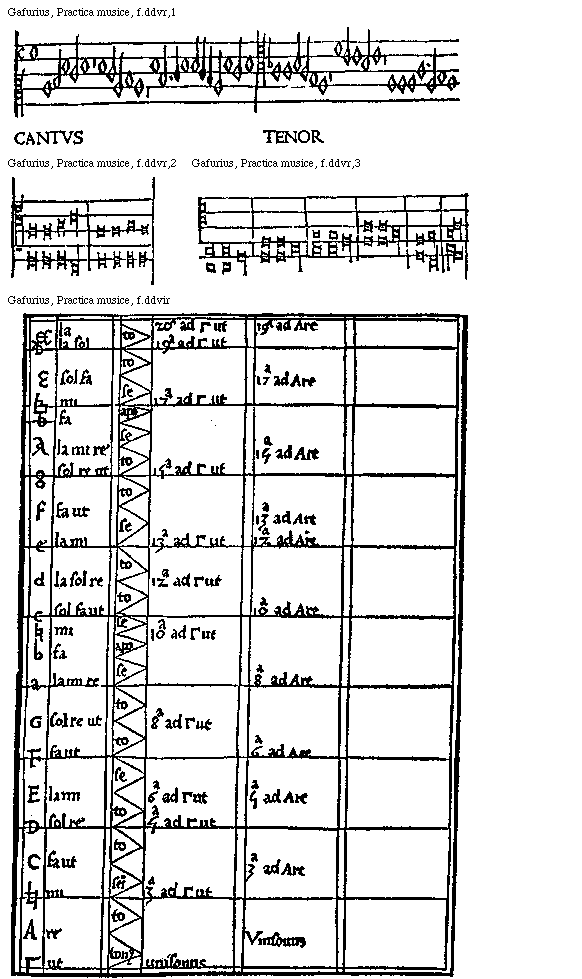 Gafurius, Practica musice, f.ddvr,1
CANTVS TENOR
Gafurius, Practica musice, f.ddvr,2 Gafurius, Practica musice, f.ddvr,3
Gafurius, Practica musice, f.ddvir
la 20ª ad Γ ut 19ª ad Are
la sol to 19ª ad Γ ut
to
E sol fa 17ª ad Are
mi se 17ª ad Γ ut
b fa apo
se
A la mi re 15ª ad Are
g sol re ut to 15ª ad Γ ut
to
f fa ut 13ª ad Are
e la mi se 13ª ad Γ ut 12ª ad Are
to
d la sol re 12ª ad Γ ut
to
c sol fa ut 10ª ad Are
♮ mi se 10ª ad Γ ut
b fa apo
se
a la mi re 8ª ad Are
to
G sol re ut 8ª ad Γ ut
to
F fa ut 6ª ad Are
se
E la mi 6ª ad Γ ut 5ª ad Are
to
D sol re 5ª ad Γ ut
to
C fa ut 3ª ad Are
♮ mi 3ª ad Γ ut
to
A re Vnisonus
Γ ut unisonus